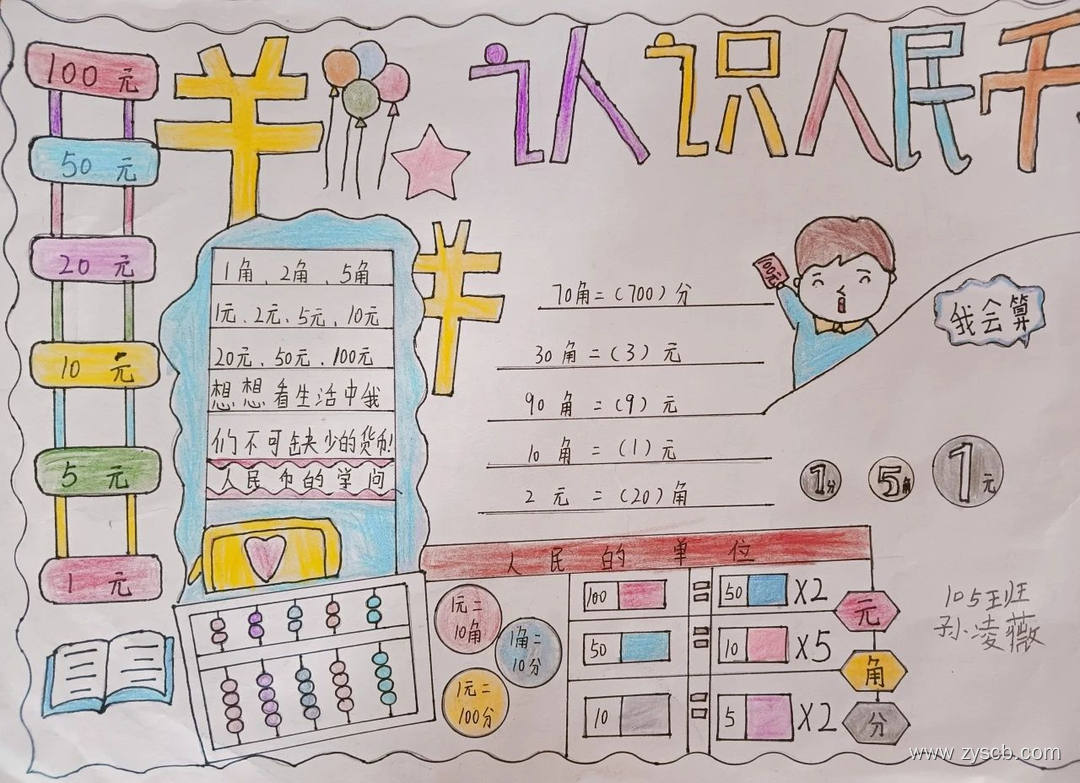 认识人民币
100元
50元
20元
10元
5元
1元
1角、2角、5角
1元、2元、5元、10元
20元、50元、100元
想想看生活中我
们不可缺少的货币!
人民币的学问
100元
我会算
70角=(700)分
30角=(3)元
90角=(9)元
10角=(1)元
2元=(20)角
1分
5角
1元
人民的单位
1元=
10角
1角=
10分
1元=
100分
100 = 50 X2
50 = 10 X5
10 = 5 X2
元
角
分
105班
孙凌薇
www.zyscb.com